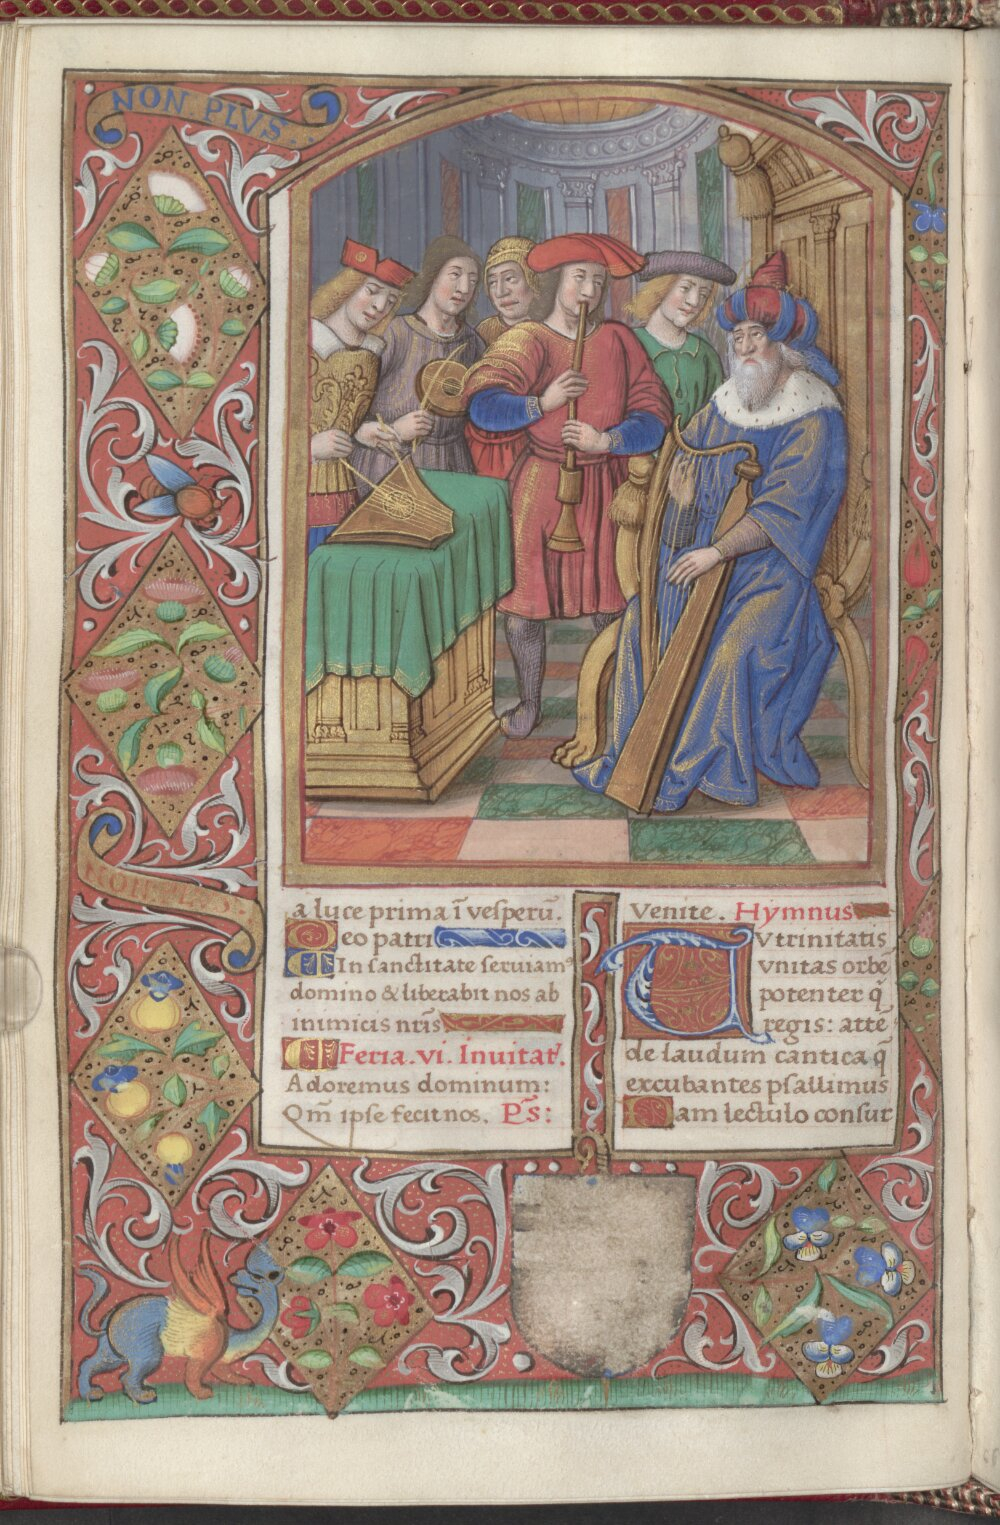 NON PLVS
NON PLVS
a luce prima ī vesperū.
Deo patri
℣ In sanctitate seruiam⁹
domino & liberabit nos ab
inimicis nr̄is
Feria. vi. Inuitat'.
Adoremus dominum:
Qm̄ ipse fecit nos. Ps̄:
Venite. Hymnus
TV trinitatis
vnitas orbē
potenter q̄
regis: attē
de laudum cantica q̄
excubantes psallimus
Nam lectulo consur